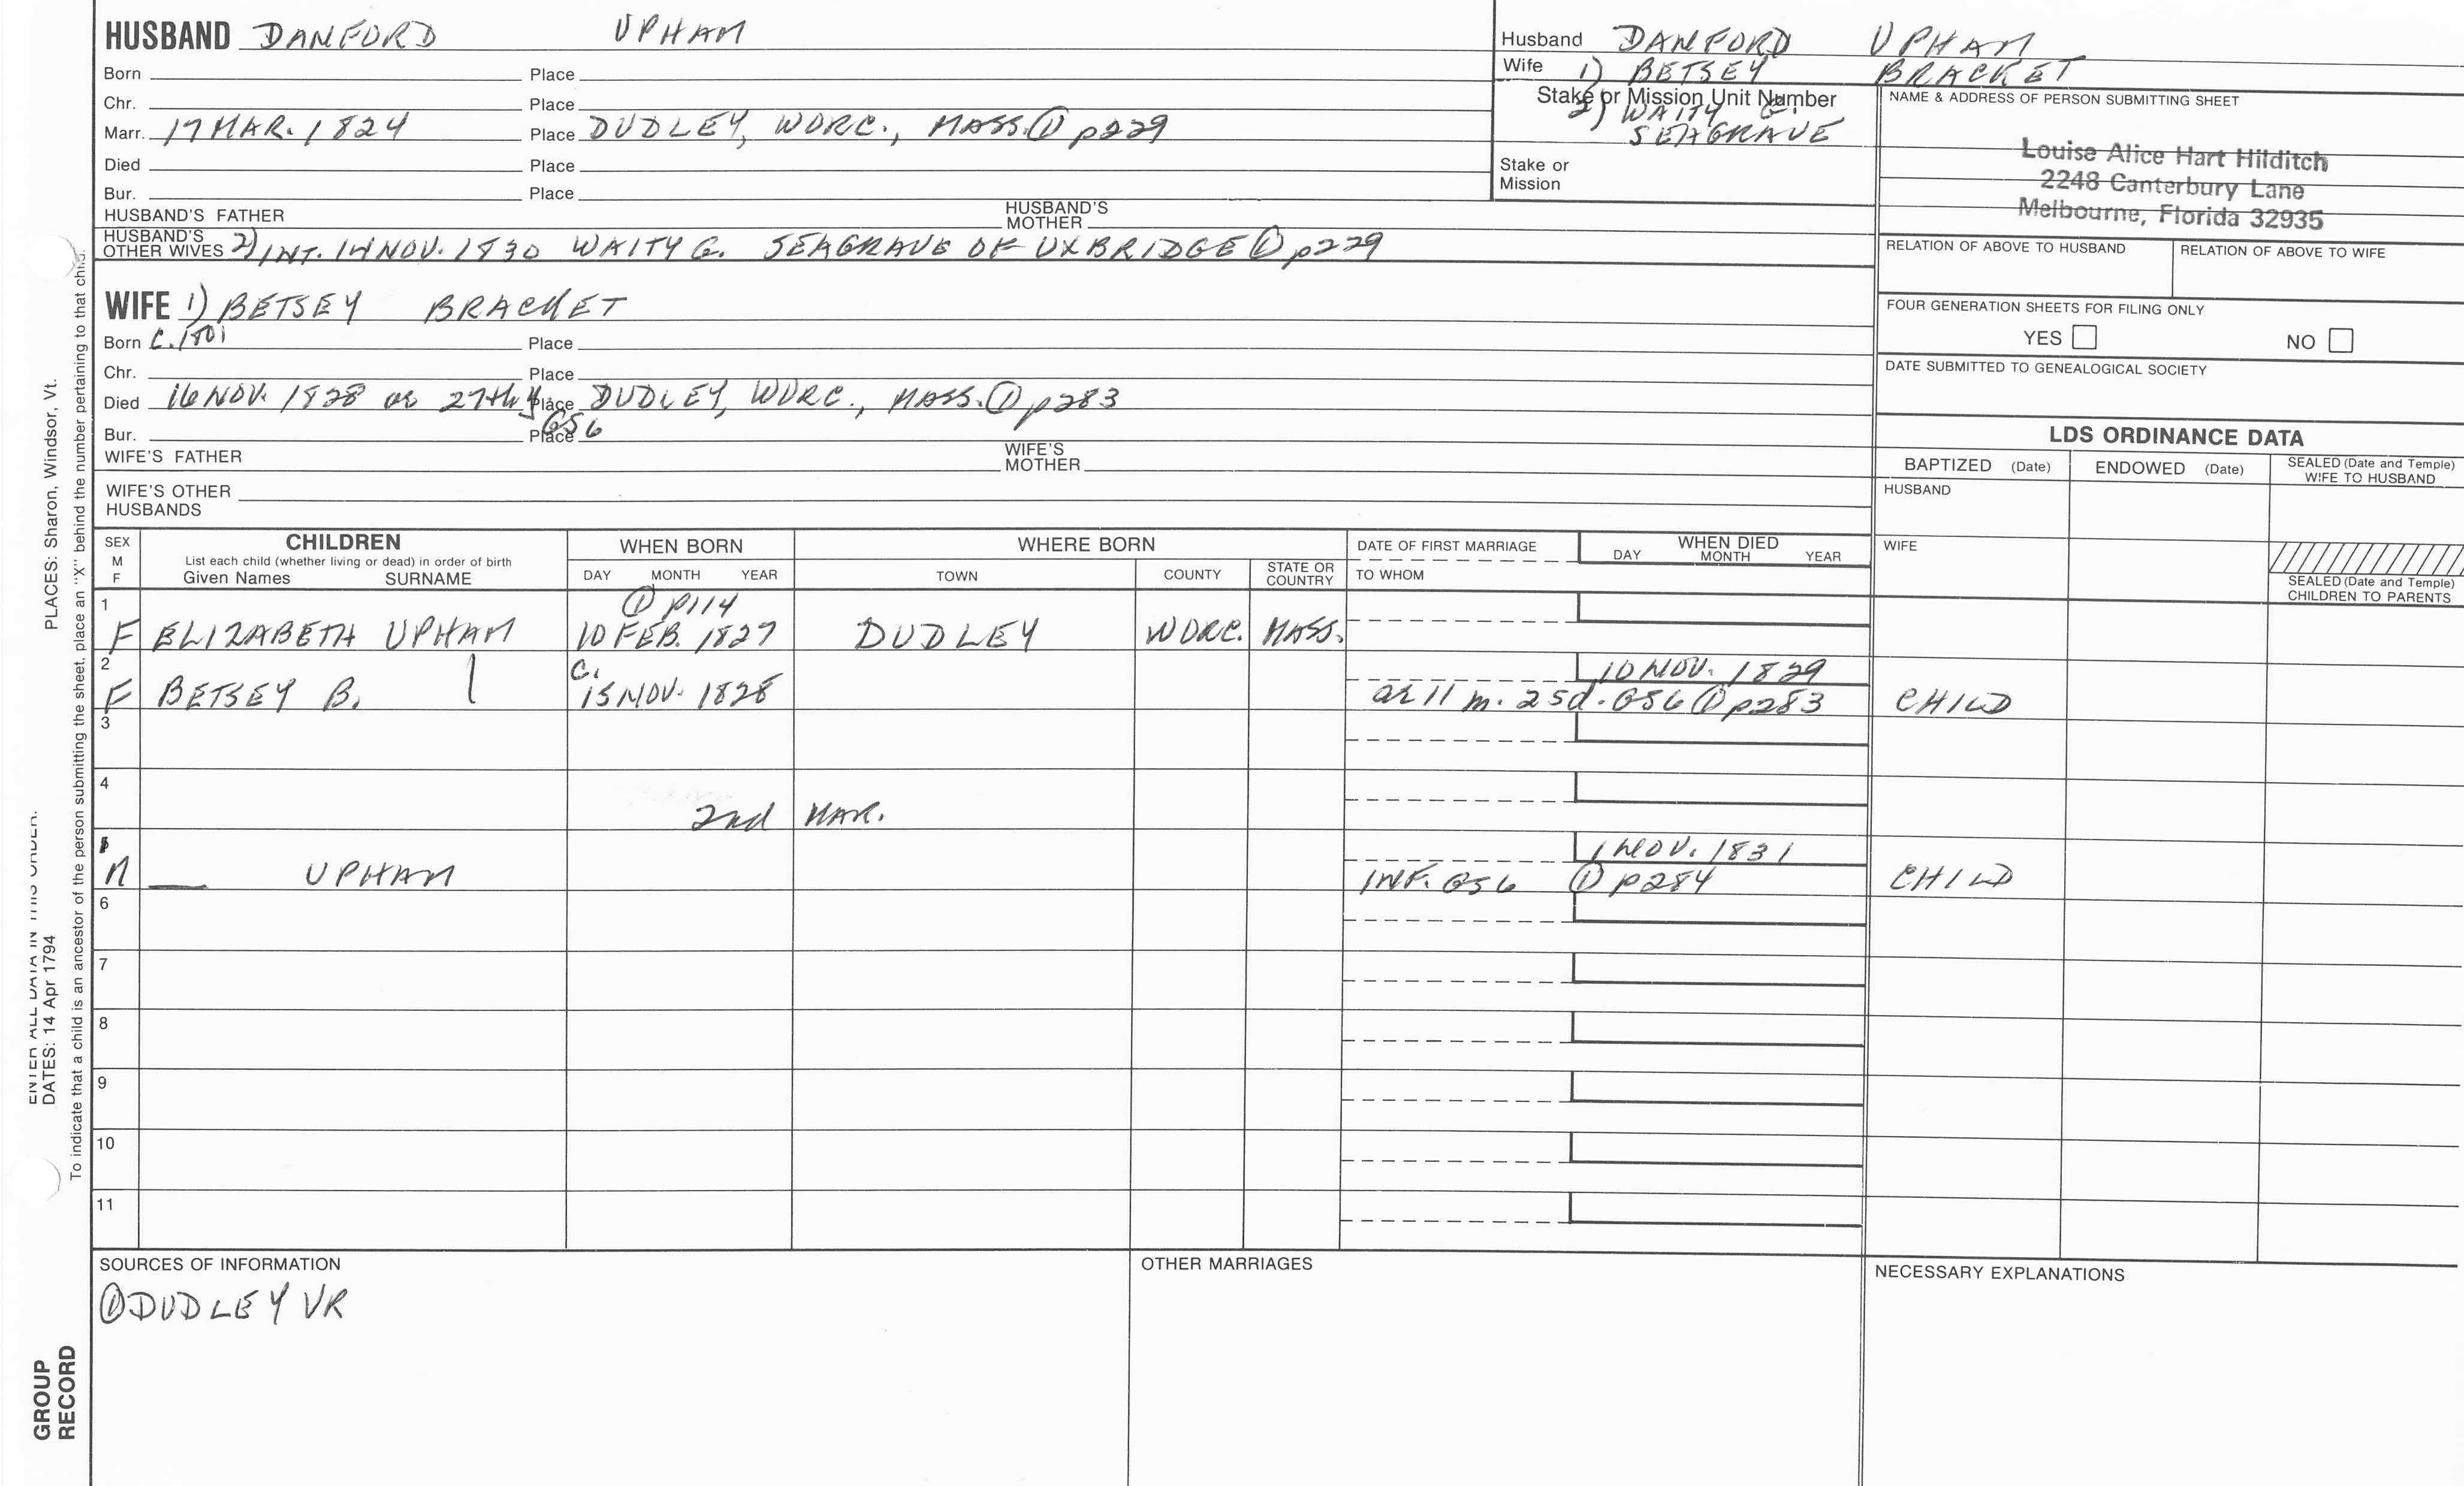 HUSBAND DANFORD UPHAM
Born Place
Chr. Place
Marr. 17 MAR. 1824 Place DUDLEY, WORC., MASS. ① p229
Died Place
Bur. Place
HUSBAND'S FATHER HUSBAND'S MOTHER
HUSBAND'S OTHER WIVES 2) INT. 14 NOV. 1830 WAITY G. SEAGRAVE OF UXBRIDGE ① p229
WIFE 1) BETSEY BRACKET
Born C. 1801 Place
Chr. Place
Died 16 NOV. 1828 ae 27th y Place DUDLEY, WORC., MASS. ① p283
GS6
Bur. Place
WIFE'S FATHER WIFE'S MOTHER
WIFE'S OTHER HUSBANDS
Husband DANFORD UPHAM
Wife 1) BETSEY BRACKET
Stake or Mission Unit Number
2) WAITY G.
SEAGRAVE
Stake or
Mission
NAME & ADDRESS OF PERSON SUBMITTING SHEET
Louise Alice Hart Hilditch
2248 Canterbury Lane
Melbourne, Florida 32935
RELATION OF ABOVE TO HUSBAND RELATION OF ABOVE TO WIFE
FOUR GENERATION SHEETS FOR FILING ONLY
YES NO
DATE SUBMITTED TO GENEALOGICAL SOCIETY
LDS ORDINANCE DATA
BAPTIZED (Date) ENDOWED (Date) SEALED (Date and Temple) WIFE TO HUSBAND
HUSBAND
WIFE
SEALED (Date and Temple)
CHILDREN TO PARENTS
SEX M F
CHILDREN
List each child (whether living or dead) in order of birth
Given Names SURNAME
WHEN BORN
DAY MONTH YEAR
WHERE BORN
TOWN COUNTY STATE OR COUNTRY
DATE OF FIRST MARRIAGE
TO WHOM
WHEN DIED
DAY MONTH YEAR
1 ① p114
F ELIZABETH UPHAM 10 FEB. 1827 DUDLEY WORC. MASS.
2 C. 10 NOV. 1829
F BETSEY B. 15 NOV. 1828 ae 11 m. 25d. GS6 ① p283 CHILD
3
4
2nd MAR.
1 NOV. 1831
M UPHAM INF. GS6 ① p284 CHILD
6
7
8
9
10
11
SOURCES OF INFORMATION
① DUDLEY VR
OTHER MARRIAGES
NECESSARY EXPLANATIONS
ENTER ALL DATA IN THIS ORDER:
DATES: 14 Apr 1794 PLACES: Sharon, Windsor, Vt.
To indicate that a child is an ancestor of the person submitting the sheet, place an "X" behind the number pertaining to that child.
GROUP
RECORD